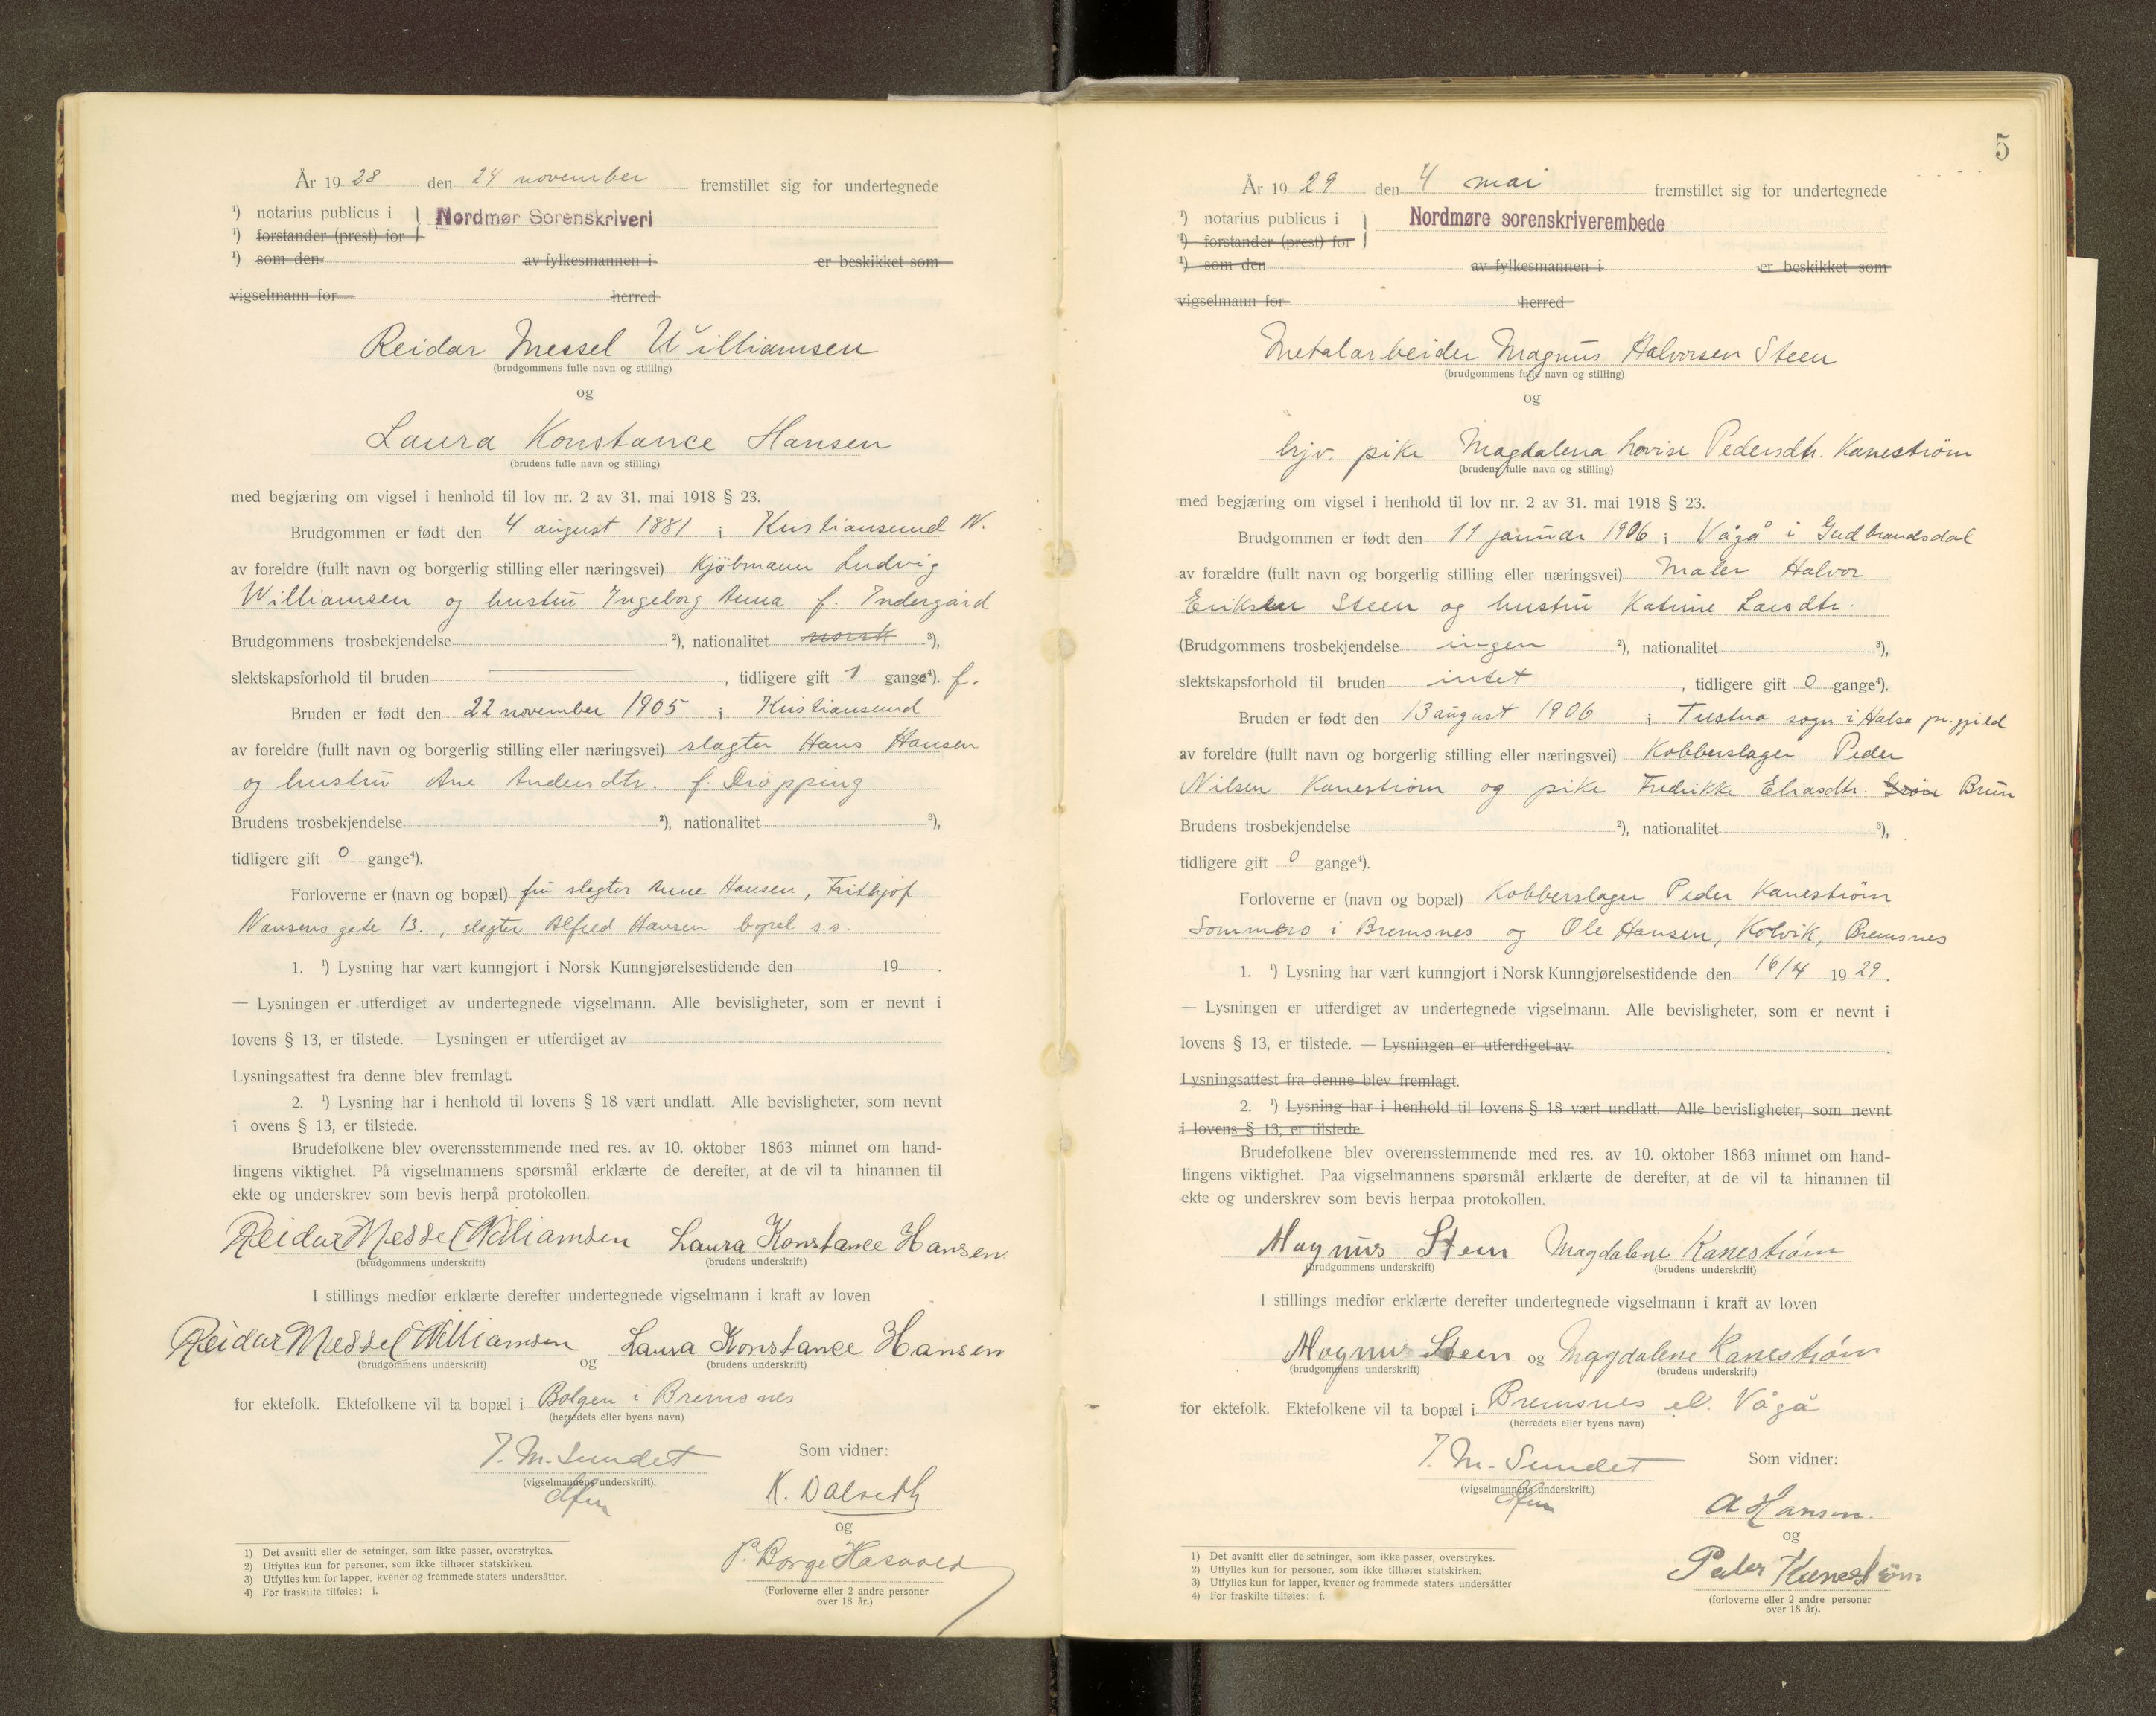 År 19 28 den 24 november fremstillet sig for undertegnede
¹) notarius publicus i } Nordmør Sorenskriveri
¹) forstander (prest) for
¹) som den av fylkesmannen i er beskikket som
vigselmann for herred
Reidar Messel Williamsen
(brudgommens fulle navn og stilling)
og
Laura Konstance Hansen
(brudens fulle navn og stilling)
med begjæring om vigsel i henhold til lov nr. 2 av 31. mai 1918 § 23.
Brudgommen er født den 4 august 1881 i Kristiansund N.
av foreldre (fullt navn og borgerlig stilling eller næringsvei) Kjöbmann Ludvig
Williamsen og hustru Ingeborg Anna f. Indergård
Brudgommens trosbekjendelse ²), nationalitet norsk ³),
slektskapsforhold til bruden , tidligere gift 1 gange⁴). f.
Bruden er født den 22 november 1905 i Kristiansund
av foreldre (fullt navn og borgerlig stilling eller næringsvei) slagter Hans Hansen
og hustru Ane Andersdtr. f. Dröpping
Brudens trosbekjendelse ²), nationalitet ³),
tidligere gift 0 gange⁴).
Forloverne er (navn og bopæl) fru slagter Anne Hansen, Fritkjof
Nansens gate 13., slagter Alfred Hansen bopel s.s.
1. ¹) Lysning har vært kunngjort i Norsk Kunngjørelsestidende den 19 .
— Lysningen er utferdiget av undertegnede vigselmann. Alle bevisligheter, som er nevnt i
lovens § 13, er tilstede. — Lysningen er utferdiget av
Lysningsattest fra denne blev fremlagt.
2. ¹) Lysning har i henhold til lovens § 18 vært undlatt. Alle bevisligheter, som nevnt
i ovens § 13, er tilstede.
Brudefolkene blev overensstemmende med res. av 10. oktober 1863 minnet om hand-
lingens viktighet. På vigselmannens spørsmål erklærte de derefter, at de vil ta hinannen til
ekte og underskrev som bevis herpå protokollen.
Reidar Messel Williamsen Laura Konstance Hansen
(brudgommens underskrift) (brudens underskrift)
I stillings medfør erklærte derefter undertegnede vigselmann i kraft av loven
Reidar Messel Williamsen og Laura Konstance Hansen
(brudgommens underskrift) (brudens underskrift)
for ektefolk. Ektefolkene vil ta bopæl i Bolgen i Bremsnes
(herredets eller byens navn)
J. M. Sundet Som vidner:
(vigselmannens underskrift).
K. Dalseth
og
P. Borge Hasvold
(Forloverne eller 2 andre personer
over 18 år.)
1) Det avsnitt eller de setninger, som ikke passer, overstrykes.
2) Utfylles kun for personer, som ikke tilhører statskirken.
3) Utfylles kun for lapper, kvener og fremmede staters undersåtter.
4) For fraskilte tilføies: f.
5
År 19 29 den 4 mai fremstillet sig for undertegnede
¹) notarius publicus i } Nordmøre sorenskriverembede
¹) forstander (prest) for
¹) som den av fylkesmannen i er beskikket som
vigselmann for herred
Metalarbeider Magnus Halvorsen Steen
(brudgommens fulle navn og stilling)
og
hjv. pike Magdalena Lovise Pedersdtr. Kanestrøm
(brudens fulle navn og stilling)
med begjæring om vigsel i henhold til lov nr. 2 av 31. mai 1918 § 23.
Brudgommen er født den 11 januar 1906 i Vågå i Gudbrandsdal
av forældre (fullt navn og borgerlig stilling eller næringsvei) Maler Halvor
Eriksen Steen og hustru Katrine Larsdtr.
(Brudgommens trosbekjendelse ingen ²), nationalitet ³),
slektskapsforhold til bruden intet , tidligere gift 0 gange⁴).
Bruden er født den 13 august 1906 i Tustna sogn i Halsa pr.gjeld
av foreldre (fullt navn og borgerlig stilling eller næringsvei) Kobberslager Peder
Nilsen Kanestrøm og pike Fredrikke Eliasdtr. Brun
Brudens trosbekjendelse ²), nationalitet ³),
tidligere gift 0 gange⁴).
Forloverne er (navn og bopæl) Kobberslager Peder Kanestrøm
Sommero i Bremsnes og Ole Hansen, Kolvik, Bremsnes
1. ¹) Lysning har vært kunngjort i Norsk Kunngjørelsestidende den 16/4 19 29.
— Lysningen er utferdiget av undertegnede vigselmann. Alle bevisligheter, som er nevnt i
lovens § 13, er tilstede. — Lysningen er utferdiget av .
Lysningsattest fra denne blev fremlagt.
2. ¹) Lysning har i henhold til lovens § 18 vært undlatt. Alle bevisligheter, som nevnt
i lovens § 13, er tilstede.
Brudefolkene blev overensstemmende med res. av 10. oktober 1863 minnet om hand-
lingens viktighet. Paa vigselmannens spørsmål erklærte de derefter, at de vil ta hinannen til
ekte og underskrev som bevis herpaa protokollen.
Magnus Steen Magdalene Kanestrøm
(brudgommens underskrift) (brudens underskrift)
I stillings medfør erklærte derefter undertegnede vigselmann i kraft av loven
Magnus Steen og Magdalene Kanestrøm
(brudgommens underskrift) (brudens underskrift)
for ektefolk. Ektefolkene vil ta bopæl i Bremsnes el. Vågå
(herredets eller byens navn)
J. M. Sundet Som vidner:
(vigselmannens underskrift.)
A Hansen.
og
Peder Kanestrøm
(forloverne eller 2 andre personer
over 18 år).
1) Det avsnitt eller de setninger, som ikke passer, overstrykes.
2) Utfylles kun for personer, som ikke tilhører statskirken.
3) Utfylles kun for lapper, kvener og fremmede staters undersåtter
4) For fraskilte tilføies: f.